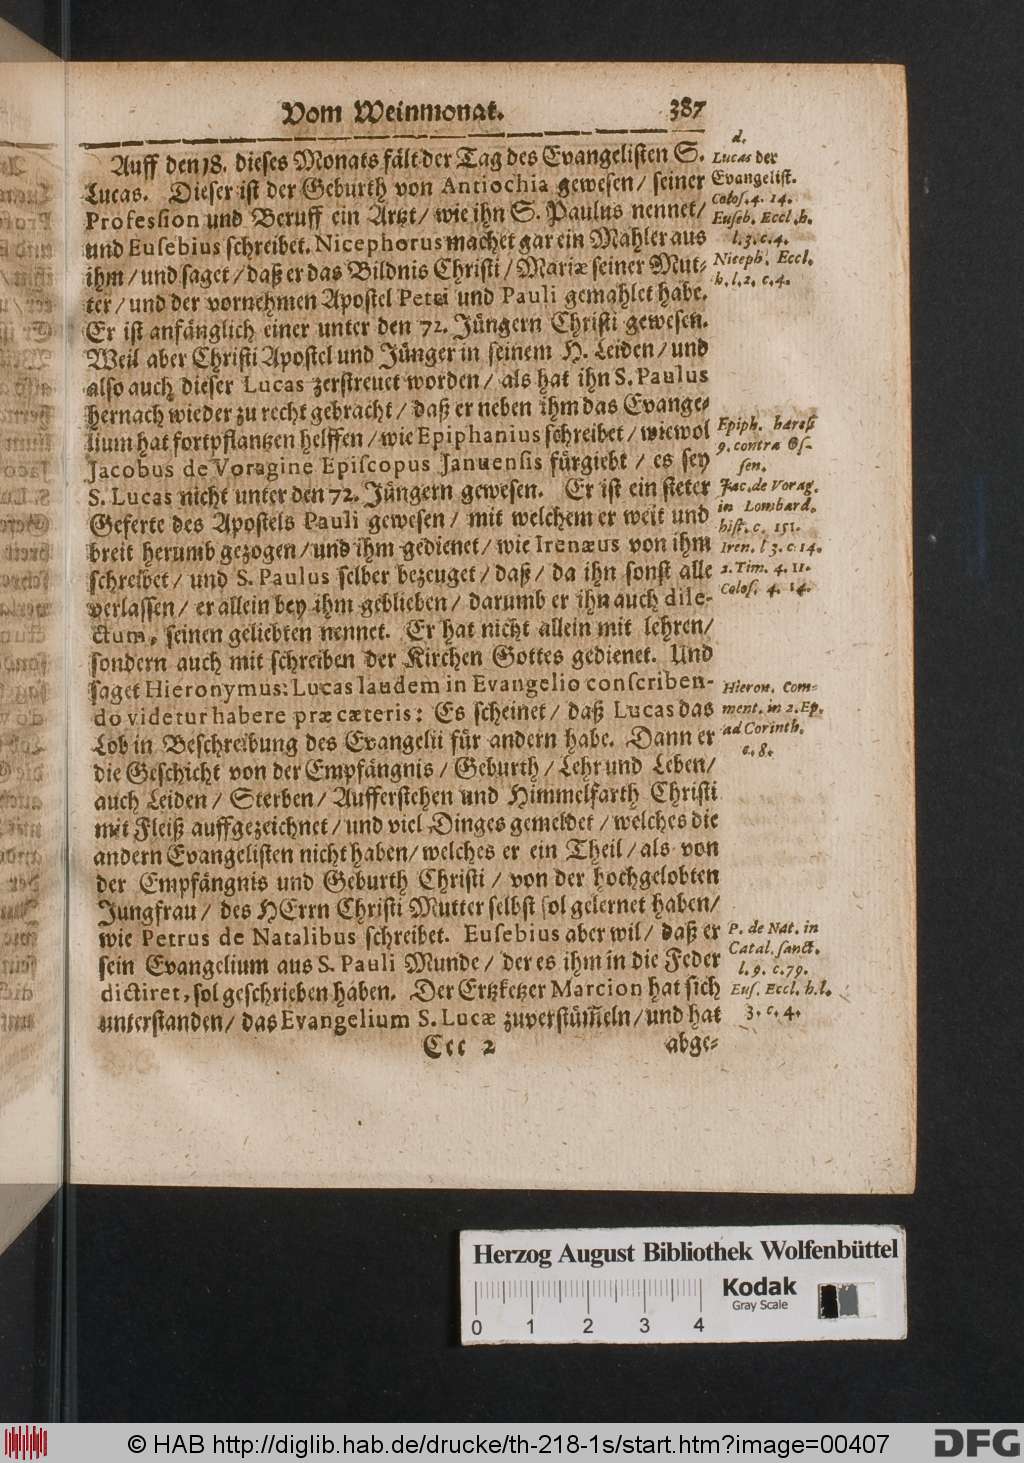 Vom Weinmonat. 387
Auff den 18. dieses Monats fält der Tag des Evangelisten S.
Lucas. Dieser ist der Geburth von Antiochia gewesen/ seiner
Profession und Beruff ein Artzt/ wie ihn S. Paulus nennet/
und Eusebius schreibet. Nicephorus machet gar ein Mahler aus
ihm/ und saget/ daß er das Bildnis Christi/ Mariæ seiner Mut-
ter/ und der vornehmen Apostel Petri und Pauli gemahlet habe.
Er ist anfänglich einer unter den 72. Jüngern Christi gewesen.
Weil aber Christi Apostel und Jünger in seinem H. Leiden/ und
also auch dieser Lucas zerstreuet worden/ als hat ihn S. Paulus
hernach wieder zu recht gebracht/ daß er neben ihm das Evange-
lium hat fortpflantzen helffen/ wie Epiphanius schreibet/ wiewol
Jacobus de Voragine Episcopus Januensis fürgiebt/ es sey
S. Lucas nicht unter den 72. Jüngern gewesen. Er ist ein steter
Geferte des Apostels Pauli gewesen/ mit welchem er weit und
breit herumb gezogen/ und ihm gedienet/ wie Irenæus von ihm
schreibet/ und S. Paulus selber bezeuget/ daß/ da ihn sonst alle
verlassen/ er allein bey ihm geblieben/ darumb er ihn auch dile-
ctum, seinen geliebten nennet. Er hat nicht allein mit lehren/
sondern auch mit schreiben der Kirchen Gottes gedienet. Und
saget Hieronymus: Lucas laudem in Evangelio conscriben-
do videtur habere præ cæteris: Es scheinet/ daß Lucas das
Lob in Beschreibung des Evangelii für andern habe. Dann er
die Geschicht von der Empfängnis/ Geburth/ Lehr und Leben/
auch Leiden/ Sterben/ Aufferstehen und Himmelfarth Christi
mit Fleiß auffgezeichnet/ und viel Dinges gemeldet/ welches die
andern Evangelisten nicht haben/ welches er ein Theil/ als von
der Empfängnis und Geburth Christi/ von der hochgelobten
Jungfrau/ des HErrn Christi Mutter selbst sol gelernet haben/
wie Petrus de Natalibus schreibet. Eusebius aber wil/ daß er
sein Evangelium aus S. Pauli Munde/ der es ihm in die Feder
dictiret, sol geschrieben haben. Der Ertzketzer Marcion hat sich
unterstanden/ das Evangelium S. Lucæ zuverstüm̃eln/ und hat
Ccc 2 abge-
d.
Lucas der
Evangelist.
Colos. 4. 14.
Euseb. Eccl. h.
l. 3. c. 4.
Niceph. Eccl.
h. l. 2. c. 4.
Epiph. hæres
9. contra Os-
sen.
Jac. de Vorag.
in Lombard.
hist. c. 151.
Iren. l 3. c. 14.
2. Tim. 4. 11.
Colos. 4. 14.
Hieron. Com-
ment. in 2. Ep.
ad Corinth.
c. 8.
P. de Nat. in
Catal. sanct.
l. 9. c. 79.
Eus. Eccl. h. l.
3. c. 4.
Herzog August Bibliothek Wolfenbüttel
Kodak
Gray Scale
0 1 2 3 4
© HAB http://diglib.hab.de/drucke/th-218-1s/start.htm?image=00407
DFG